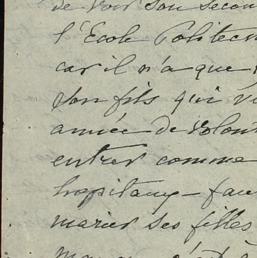 de voir son secon
l'École Politecn
car il n'a que
son fils qui v
année de volon
entrer comme
hopitaux - fau
marier ses filles